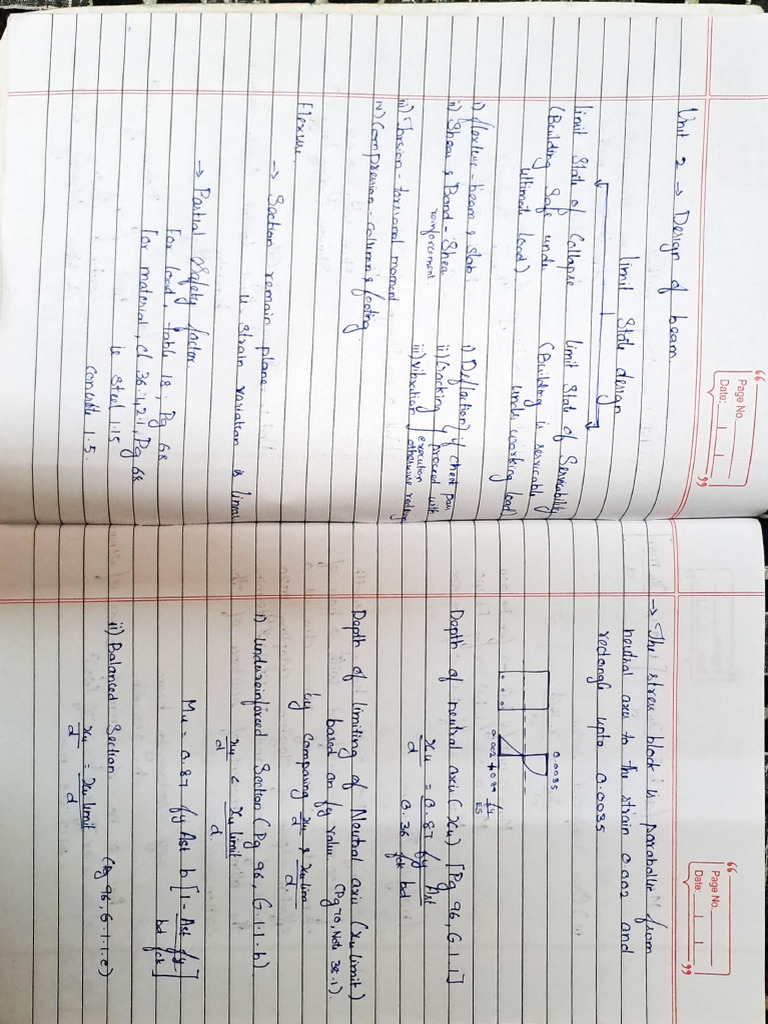 Page No.
Date:
Unit 2 → Design of beam
limit State design
limit State of Collapse
(Building Safe unde
ultimate load)
limit State of Servicability
(Building is servicable
under working load)
i) flexture - beam & slab
ii) Shear & Bond - Shear
reinforcement
iii) Torsion - torsional moment
iv) Compression - column & footing
i) Deflection
ii) Cracking
iii) Vibration
if check pass
proceed with
execution
otherwise redesig
Flexure
→ Section remain plane
ie strain variation is linear
→ Partial Safety factor
For load, table 18, Pg 68
For material, cl 36.4.2.1, Pg 68
ie Steel 1.15
Concrete 1.5
Page No.
Date:
→ The stress block is parabollic from
neutral axis to the strain 0.002 and
rectangle upto 0.0035
0.0035
0.002 + 0.87 fy
Es
Depth of neutral axis (xu) [Pg 96, G.1.1]
xu = 0.87 fy Ast
d 0.36 fck bd
Depth of limiting of Neutral axis (xu limit)
based on fy value (Pg 70, Note 38.1).
by comparing xu & xu lim
d d
i) underreinforced Section (Pg 96, G.1.1.b)
xu < xu limit
d d
Mu = 0.87 fy Ast b [1 - Ast fy]
bd fck
ii) Balanced Section (Pg 96, G.1.1.c)
xu = xu limit
d d